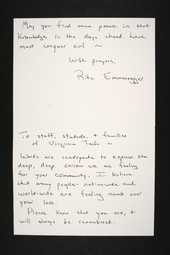 May you find some peace in that
knowledge in the days ahead. Love
must conquer evil ~
With prayers,
Rita Emmenegger
To staff, students, & families
of Virginia Tech ~
Words are inadequate to express the
deep, deep sorrow we are feeling
for your community. I believe
that many people nationwide and
world-wide are feeling numb over
your loss.
Please know that you are, &
will always be remembered.